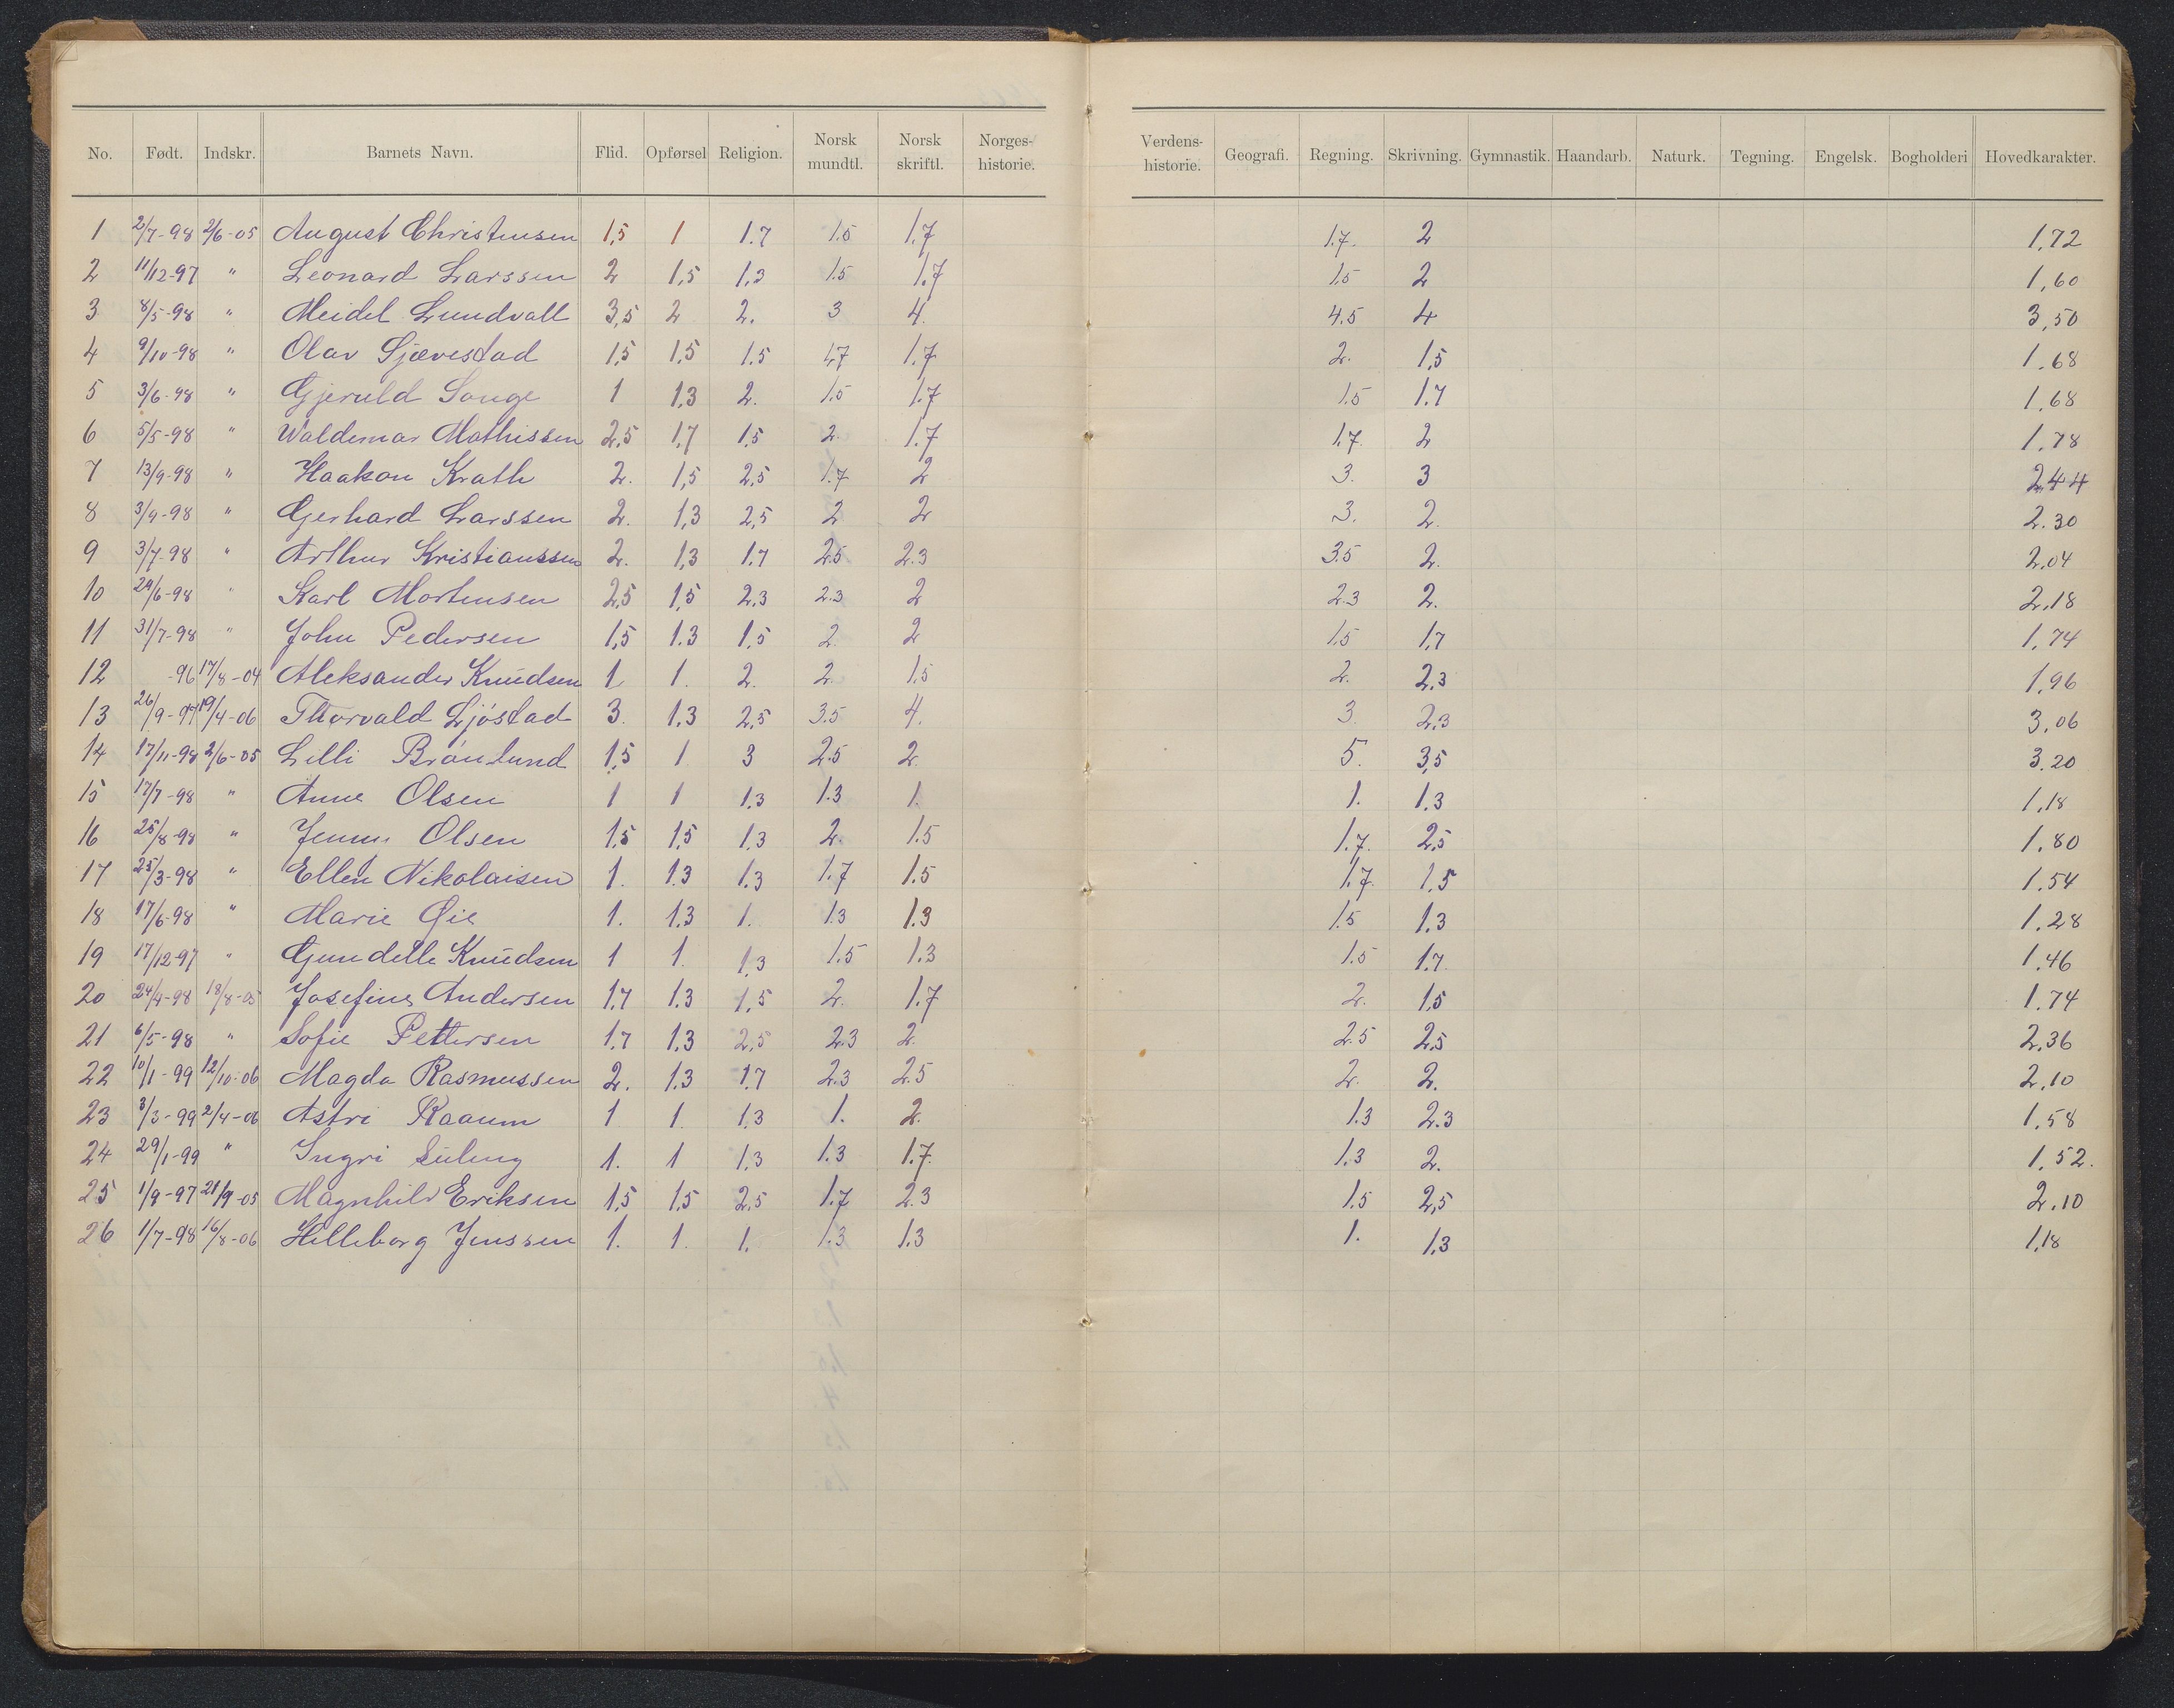 No. Født. Indskr. Barnets Navn. Flid. Opførsel Religion. Norsk mundtl. Norsk skriftl. Norges-historie. Verdens-historie. Geografi. Regning. Skrivning. Gymnastik. Haandarb. Naturk. Tegning. Engelsk. Bogholderi Hovedkarakter.
1 2/7-98 2/6-05 August Christensen 1,5 1 1.7 1.5 1.7 1.7. 2 1,72
2 11/12-97 " Leonard Larssen 2 1,5 1,3 1.5 1.7 1.5 2 1,60
3 8/5-98 " Meidel Lundvall 3,5 2 2. 3 4. 4.5 4 3,50
4 9/10-98 " Olav Sjævestad 1,5 1,5 1.5 1,7 1.7 2. 1,5 1.68
5 3/6-98 " Gjeruld Songe 1 1.3 2. 1.5 1.7 1.5 1.7 1,68
6 5/5-98 " Waldemar Mathissen 2,5 1,7 1,5 2. 1.7 1.7. 2 1,78
7 13/9-98 " Haakon Krath 2. 1,5 2,5 1.7 2 3. 3 2,44
8 3/9-98 " Gerhard Larssen 2. 1,3 2,5 2 2 3. 2. 2.30
9 3/7-98 " Arthur Kristianssen 2. 1,3 1.7 2.5 2.3 3.5 2. 2,04
10 29/6-98 " Karl Mortensen 2,5 1,5 2,3 2.3 2 2.3 2. 2,18
11 31/7-98 " John Pedersen 1,5 1.3 1,5 2 2 1.5 1,7 1,74
12 -96 17/8-04 Aleksander Knudsen 1 1. 2. 2. 1.5 2. 2,3 1,96
13 26/9-97 19/4-06 Thorvald Ljöstad 3. 1.3 2,5 3.5 4. 3. 2,3 3,06
14 17/11-98 2/6-05 Lilli Brönlund 1,5 1 3 2.5 2. 5. 3,5 3.20
15 17/7-98 " Anne Olsen 1 1 1,3 1.3 1. 1. 1.3 1,18
16 25/8-98 " Jenny Olsen 1,5 1,5 1,3 2. 1.5 1.7. 2,5 1,80
17 25/3-98 " Ellen Nikolaisen 1. 1.3 1,3 1.7 1.5 1.7. 1,5 1.54
18 17/6-98 " Marie Øie 1. 1.3 1. 1.3 1.3 1.5 1.3 1.28
19 17/12-97 " Gundelle Knudsen 1 1. 1,3 1.5 1.3 1.5 1.7. 1.46
20 24/4-98 18/8-05 Josefine Andersen 1,7 1.3 1,5 2. 1.7 2. 1,5 1.74
21 6/5-98 " Sofie Pettersen 1.7 1.3 2,5 2.3 2. 2.5 2,5 2,36
22 10/1-99 12/10-06 Magda Rasmussen 2. 1.3 1.7 2.3 2.5 2. 2. 2,10
23 3/3-99 2/4-06 Astri Raaum 1 1. 1,3 1. 2. 1.3 2.3 1,58
24 29/1-99 " Ingri Suling 1. 1 1,3 1.3 1.7. 1.3 2. 1,52.
25 1/9-97 21/9-05 Magnhild Eriksen 1,5 1,5 2,5 1.7 2.3 1.5 2,5 2.10
26 1/7-98 16/8-06 Hilleborg Jenssen 1. 1. 1. 1.3 1.3 1. 1,3 1,18